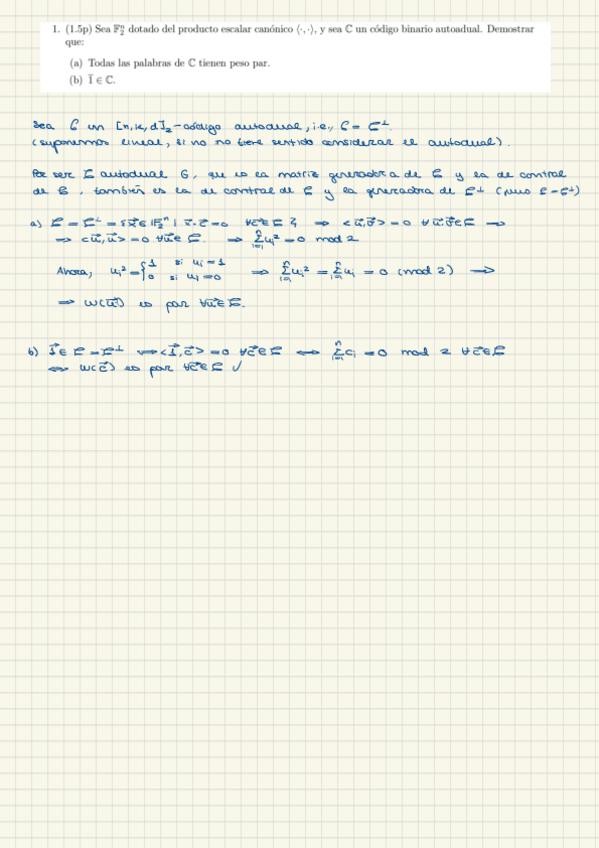 1. (1.5p) Sea 𝔽₂ⁿ dotado del producto escalar canónico ⟨·,·⟩, y sea ℂ un código binario autoadual. Demostrar
que:
(a) Todas las palabras de ℂ tienen peso par.
(b) 1̄ ∈ ℂ.
Sea C un [n,k,d]₂-código autodual, i.e., C = C^⊥.
(suponemos lineal, si no no tiene sentido considerar el autodual).
Por ser C autodual G, que es la matriz generadora de C y la de control
de C, también es la de control de C y la generadora de C^⊥ (pues C=C^⊥)
a) C = C^⊥ = {x⃗ ∈ 𝔽₂ⁿ | x⃗·c⃗ = 0 ∀c⃗∈C} ⇒ <u⃗,v⃗> = 0 ∀u⃗,v⃗∈C ⇒
⇒ <u⃗,u⃗> = 0 ∀u⃗∈C. ⇒ Σⁿᵢ₌₁ uᵢ² = 0 mod 2
Ahora, uᵢ² = { 1 si uᵢ=1
0 si uᵢ=0 ⇒ Σⁿᵢ₌₁ uᵢ² = Σⁿᵢ₌₁ uᵢ = 0 (mod 2) ⇒
⇒ w(u⃗) es par ∀u⃗∈C.
b) 1⃗ ∈ C = C^⊥ ⟺ <1⃗,c⃗> = 0 ∀c⃗∈C ⟺ Σⁿᵢ₌₁ cᵢ = 0 mod 2 ∀c⃗∈C
⟺ w(c⃗) es par ∀c⃗∈C ✓